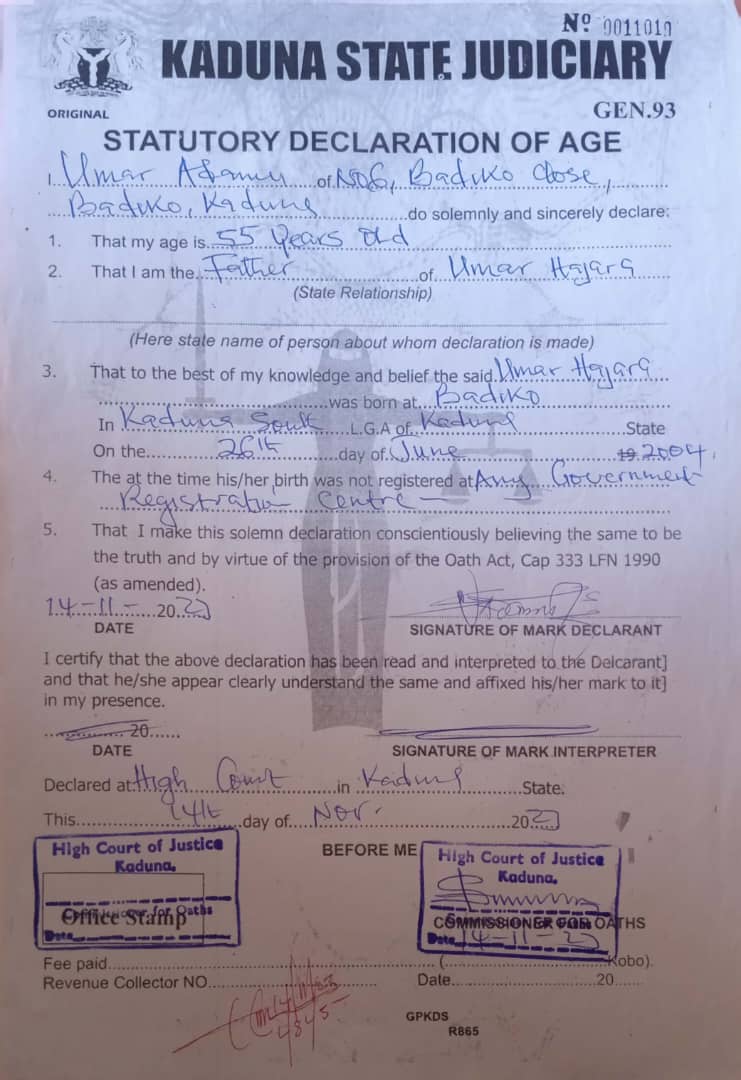 Nº 0011010
KADUNA STATE JUDICIARY
ORIGINAL
GEN.93
STATUTORY DECLARATION OF AGE
I, Umar Adamu of NO6, Badiko Close,
Badiko, Kaduna do solemnly and sincerely declare:
1. That my age is 55 Years Old
2. That I am the Father of Umar Hajara
(State Relationship)
(Here state name of person about whom declaration is made)
3. That to the best of my knowledge and belief the said Umar Hajara
was born at Badiko
In Kaduna South L.G.A of Kaduna State
On the 26th day of June 19 2004.
4. The at the time his/her birth was not registered at Any Government
Registration Centre
5. That I make this solemn declaration conscientiously believing the same to be
the truth and by virtue of the provision of the Oath Act, Cap 333 LFN 1990
(as amended).
14-11- 2023
DATE
SIGNATURE OF MARK DECLARANT
I certify that the above declaration has been read and interpreted to the Delcarant]
and that he/she appear clearly understand the same and affixed his/her mark to it]
in my presence.
20
DATE
SIGNATURE OF MARK INTERPRETER
Declared at High Court in Kaduna State.
This 14th day of Nov. 2023
BEFORE ME
High Court of Justice
Kaduna,
Office Stamp
for Oaths
Date
High Court of Justice
Kaduna,
COMMISSIONER FOR OATHS
Date 14-11-23
Fee paid ( Kobo).
Revenue Collector NO. Date 20
GPKDS
R865